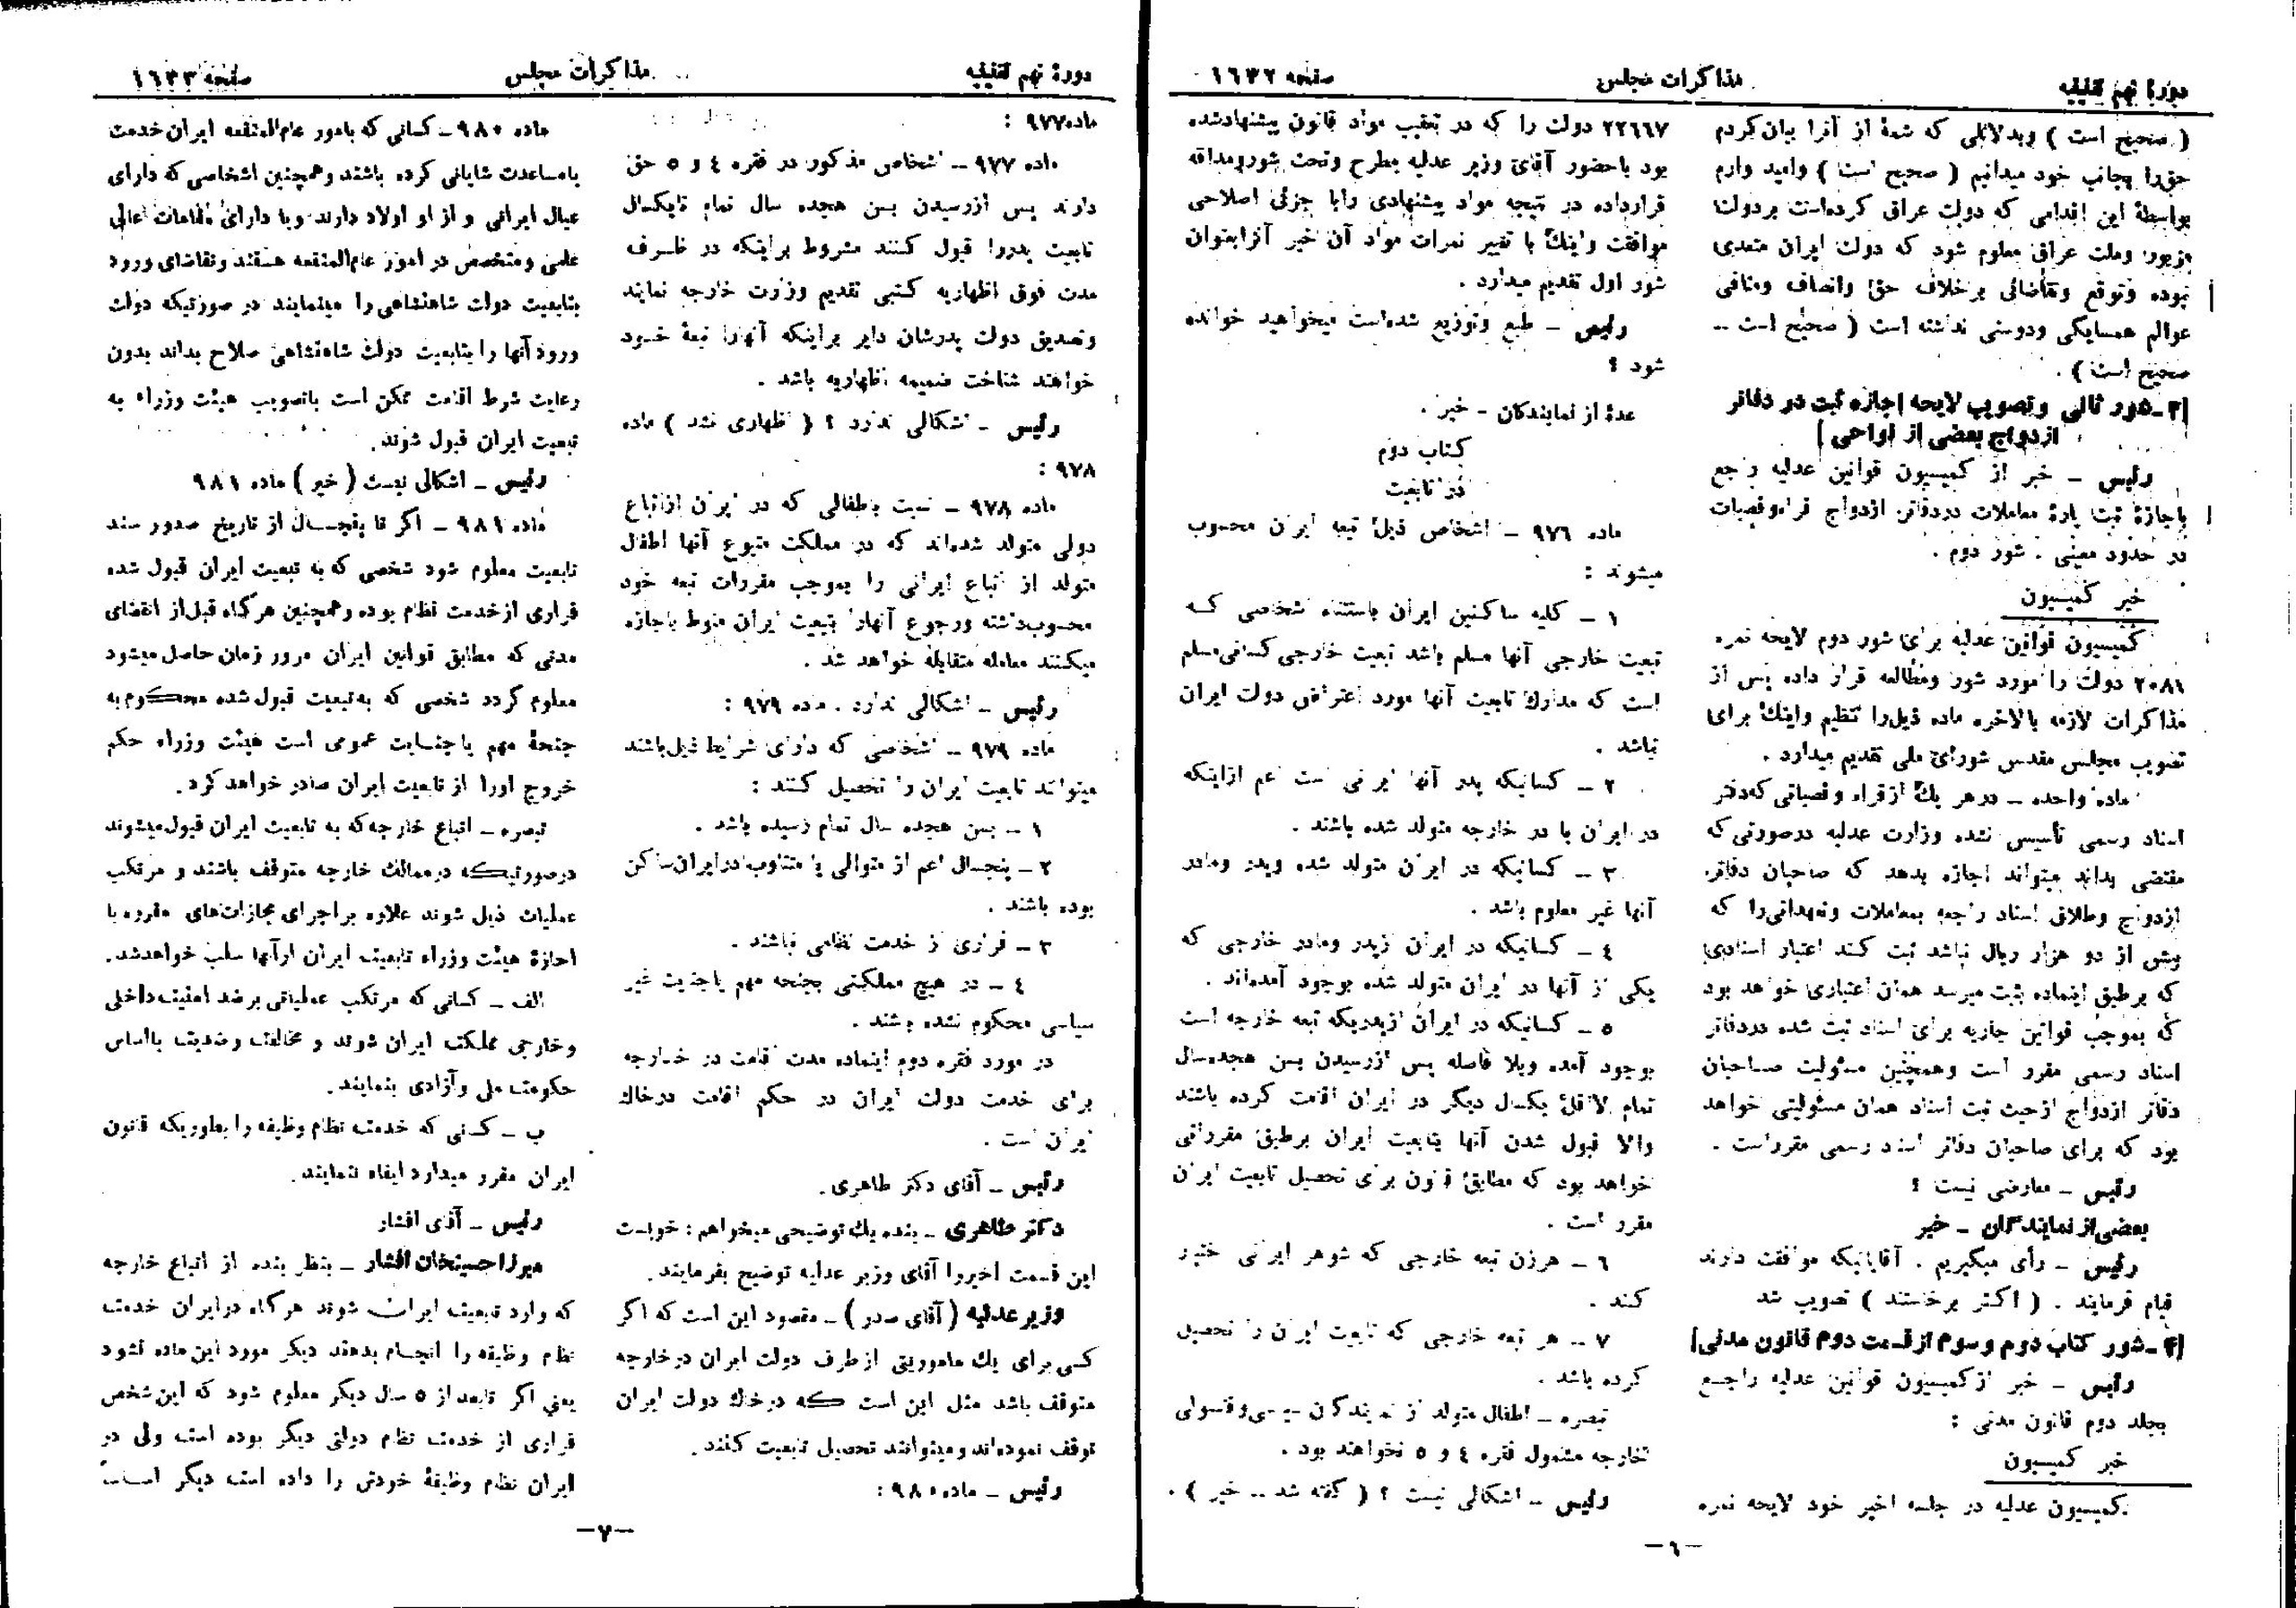 دورهٔ نهم تقنینیه
مذاکرات مجلس
صفحه ۱۶۳۲
( صحیح است ) وبدلائلی که شمهٔ از آنرا بیان کردم
حق را بجانب خود میدانیم ( صحیح است ) وامید وارم
بواسطهٔ این اقدامی که دولت عراق کرده‌است بردولت
مزبور وملت عراق معلوم شود که دولت ایران متعدی
نبوده وتوقع وتقاضائی برخلاف حق وانصاف ومنافی
عوالم همسایگی ودوستی نداشته است ( صحیح است ــ
صحیح است ) .
[۳ـ شور ثانی وتصویب لایحه اجازه ثبت در دفاتر
ازدواج بعضی از نواحی ]
رئیس ــ خبر از کمیسیون قوانین عدلیه راجع
باجازهٔ ثبت پارهٔ معاملات دردفاتر ازدواج قراءوقصبات
در حدود معینی . شور دوم .
خبر کمیسیون
کمیسیون قوانین عدلیه برای شور دوم لایحه نمره
۲۰۸۱ دولت را مورد شور ومطالعه قرار داده پس از
مذاکرات لازمه بالاخره ماده ذیل‌را تنظیم واینک برای
تصویب مجلس مقدس شورای ملی تقدیم میدارد .
ماده واحده ــ درهر یک ازقراء وقصباتی که‌دفتر
اسناد رسمی تأسیس نشده وزارت عدلیه درصورتی‌که
مقتضی بداند میتواند اجازه بدهد که صاحبان دفاتر
ازدواج وطلاق اسناد راجعه بمعاملات وتعهداتی‌را که
بیش از دو هزار ریال نباشد ثبت کنند اعتبار اسنادی
که برطبق اینماده بثبت میرسد همان اعتباری خواهد بود
که بموجب قوانین جاریه برای اسناد ثبت شده دردفاتر
اسناد رسمی مقرر است وهمچنین مسئولیت صاحبان
دفاتر ازدواج ازحیث ثبت اسناد همان مسئولیتی خواهد
بود که برای صاحبان دفاتر اسناد رسمی مقرراست .
رئیس ــ معارضی نیست ؟
بعضی‌از نمایندگان ــ خیر
رئیس ــ رأی میگیریم . آقایانیکه موافقت دارند
قیام فرمایند . ( اکثر برخاستند ) تصویب شد
[۴ـ شور کتاب دوم وسوم ازقسمت دوم قانون مدنی]
رئیس ــ خبر ازکمیسیون قوانین عدلیه راجع
بجلد دوم قانون مدنی :
خبر کمیسیون
کمیسیون عدلیه در جلسه اخیر خود لایحه نمره
۲۲۶۶۷ دولت را که در تعقیب مواد قانون پیشنهادشده
بود باحضور آقای وزیر عدلیه مطرح وتحت شورومداقه
قرارداده در نتیجه مواد پیشنهادی رابا جزئی اصلاحی
موافقت واینک با تغییر نمرات مواد آن خبر آنرابعنوان
شور اول تقدیم میدارد .
رئیس ــ طبع وتوزیع شده‌است میخواهید خوانده
شود ؟
عدهٔ از نمایندگان ــ خیر .
کتاب دوم
در تابعیت
ماده ۹۷۶ ــ اشخاص ذیل تبعه ایران محسوب
میشوند :
۱ ــ کلیه ساکنین ایران باستثناء اشخاصی که
تبعیت خارجی آنها مسلم باشد تبعیت خارجی کسانی‌مسلم
است که مدارک تابعیت آنها مورد اعتراض دولت ایران
نباشد .
۲ ــ کسانیکه پدر آنها ایرانی است اعم ازاینکه
در ایران یا در خارجه متولد شده باشند .
۳ ــ کسانیکه در ایران متولد شده وپدر ومادر
آنها غیر معلوم باشد .
٤ ــ کسانیکه در ایران ازپدر ومادر خارجی که
یکی از آنها در ایران متولد شده بوجود آمده‌اند .
٥ ــ کسانیکه در ایران ازپدریکه تبعه خارجه است
بوجود آمده وبلا فاصله پس ازرسیدن بسن هجده‌سال
تمام لااقل یکسال دیگر در ایران اقامت کرده باشند
والا قبول شدن آنها بتابعیت ایران برطبق مقرراتی
خواهد بود که مطابق قانون برای تحصیل تابعیت ایران
مقرر است .
٦ ــ هرزن تبعه خارجی که شوهر ایرانی اختیار
کند .
۷ ــ هر تبعه خارجی که تابعیت ایران را تحصیل
کرده باشد .
تبصره ــ اطفال متولد از نمایندگان سیاسی‌وقنسولی
خارجه مشمول فقره ٤ و ٥ نخواهند بود .
رئیس ــ اشکالی نیست ؟ ( گفته شد ــ خیر ) .
ــ٦ــ
دورهٔ نهم تقنینیه
مذاکرات مجلس
صفحه ۱۶۳۳
ماده۹۷۷ :
ماده ۹۷۷ ــ اشخاص مذکور در فقره ٤ و ٥ حق
دارند پس ازرسیدن بسن هجده سال تمام تایکسال
تابعیت پدررا قبول کنند مشروط براینکه در ظرف
مدت فوق اظهاریه کتبی تقدیم وزارت خارجه نمایند
وتصدیق دولت پدرشان دایر براینکه آنهارا تبعهٔ خود
خواهند شناخت ضمیمه اظهاریه باشد .
رئیس ــ اشکالی ندارد ؟ ( اظهاری نشد ) ماده
۹۷۸ :
ماده ۹۷۸ ــ نسبت باطفالی که در ایران ازاتباع
دولی متولد شده‌اند که در مملکت متبوع آنها اطفال
متولد از اتباع ایرانی را بموجب مقررات تبعه خود
محسوب‌داشته ورجوع آنهارا بتبعیت ایران منوط باجازه
میکنند معامله متقابله خواهد شد .
رئیس ــ اشکالی ندارد . ماده ۹۷۹ :
ماده ۹۷۹ ــ اشخاصی که دارای شرایط ذیل‌باشند
میتوانند تابعیت ایران را تحصیل کنند :
۱ ــ بسن هجده سال تمام رسیده باشند .
۲ ــ پنجسال اعم از متوالی یا متناوب درایران‌ساکن
بوده باشند .
۳ ــ فراری از خدمت نظامی نباشند .
٤ ــ در هیچ مملکتی بجنحه مهم یاجنایت غیر
سیاسی محکوم نشده باشند .
در مورد فقره دوم اینماده مدت اقامت در خارجه
برای خدمت دولت ایران در حکم اقامت درخاک
ایران است .
رئیس ــ آقای دکتر طاهری.
دکتر طاهری ــ بنده یک توضیحی میخواهم : خوبست
این قسمت اخیررا آقای وزیر عدلیه توضیح بفرمایند.
وزیر عدلیه ( آقای صدر ) ــ مقصود این است که اگر
کسی برای یک ماموریتی ازطرف دولت ایران درخارجه
متوقف باشد مثل این است که درخاک دولت ایران
توقف نموده‌اند ومیتوانند تحصیل تابعیت کنند.
رئیس ــ ماده ۹۸۰ :
ماده ۹۸۰ ــ کسانی که بامور عام‌المنفعه ایران خدمت
یامساعدت شایانی کرده باشند وهمچنین اشخاصی که دارای
عیال ایرانی و از او اولاد دارند ویا دارای مقامات عالی
علمی ومتخصص در امور عام‌المنفعه هستند وتقاضای ورود
بتابعیت دولت شاهنشاهی را مینمایند در صورتیکه دولت
ورود آنها را بتابعیت دولت شاهنشاهی صلاح بداند بدون
رعایت شرط اقامت ممکن است باتصویب هیئت وزراء به
تبعیت ایران قبول شوند.
رئیس ــ اشکالی نیست ( خیر ) ماده ۹۸۱
ماده ۹۸۱ ــ اگر تا پنجسال از تاریخ صدور سند
تابعیت معلوم شود شخصی که به تبعیت ایران قبول شده
فراری ازخدمت نظام بوده وهمچنین هرگاه قبل‌از انقضای
مدتی که مطابق قوانین ایران مرور زمان حاصل میشود
معلوم گردد شخصی که به‌تبعیت قبول شده محکوم‌به
جنحهٔ مهم یا جنایت عمومی است هیئت وزراء حکم
خروج اورا از تابعیت ایران صادر خواهد کرد.
تبصره ــ اتباع خارجه‌که به تابعیت ایران قبول‌میشوند
درصورتیکه درممالک خارجه متوقف باشند و مرتکب
عملیات ذیل شوند علاوه براجرای مجازات‌های مقرره با
اجازهٔ هیئت وزراء تابعیت ایران ازآنها سلب خواهدشد.
الف ــ کسانی که مرتکب عملیاتی برضد امنیت‌داخلی
وخارجی مملکت ایران شوند و مخالفت وضدیت بااساس
حکومت ملی وآزادی بنمایند.
ب ــ کسانی که خدمت نظام وظیفه را بطوریکه قانون
ایران مقرر میدارد ایفاء ننمایند.
رئیس ــ آقای افشار
میرزاحسینخان افشار ــ بنظر بنده از اتباع خارجه
که وارد تبعیت ایران شوند هرگاه درایران خدمت
نظام وظیفه را انجام بدهند دیگر مورد این ماده نشود
یعنی اگر تابعد از ٥ سال دیگر معلوم شود که این‌شخص
فراری از خدمت نظام دولتی دیگر بوده است ولی در
ایران نظام وظیفهٔ خودش را داده است دیگر اساساً
ــ۷ــ